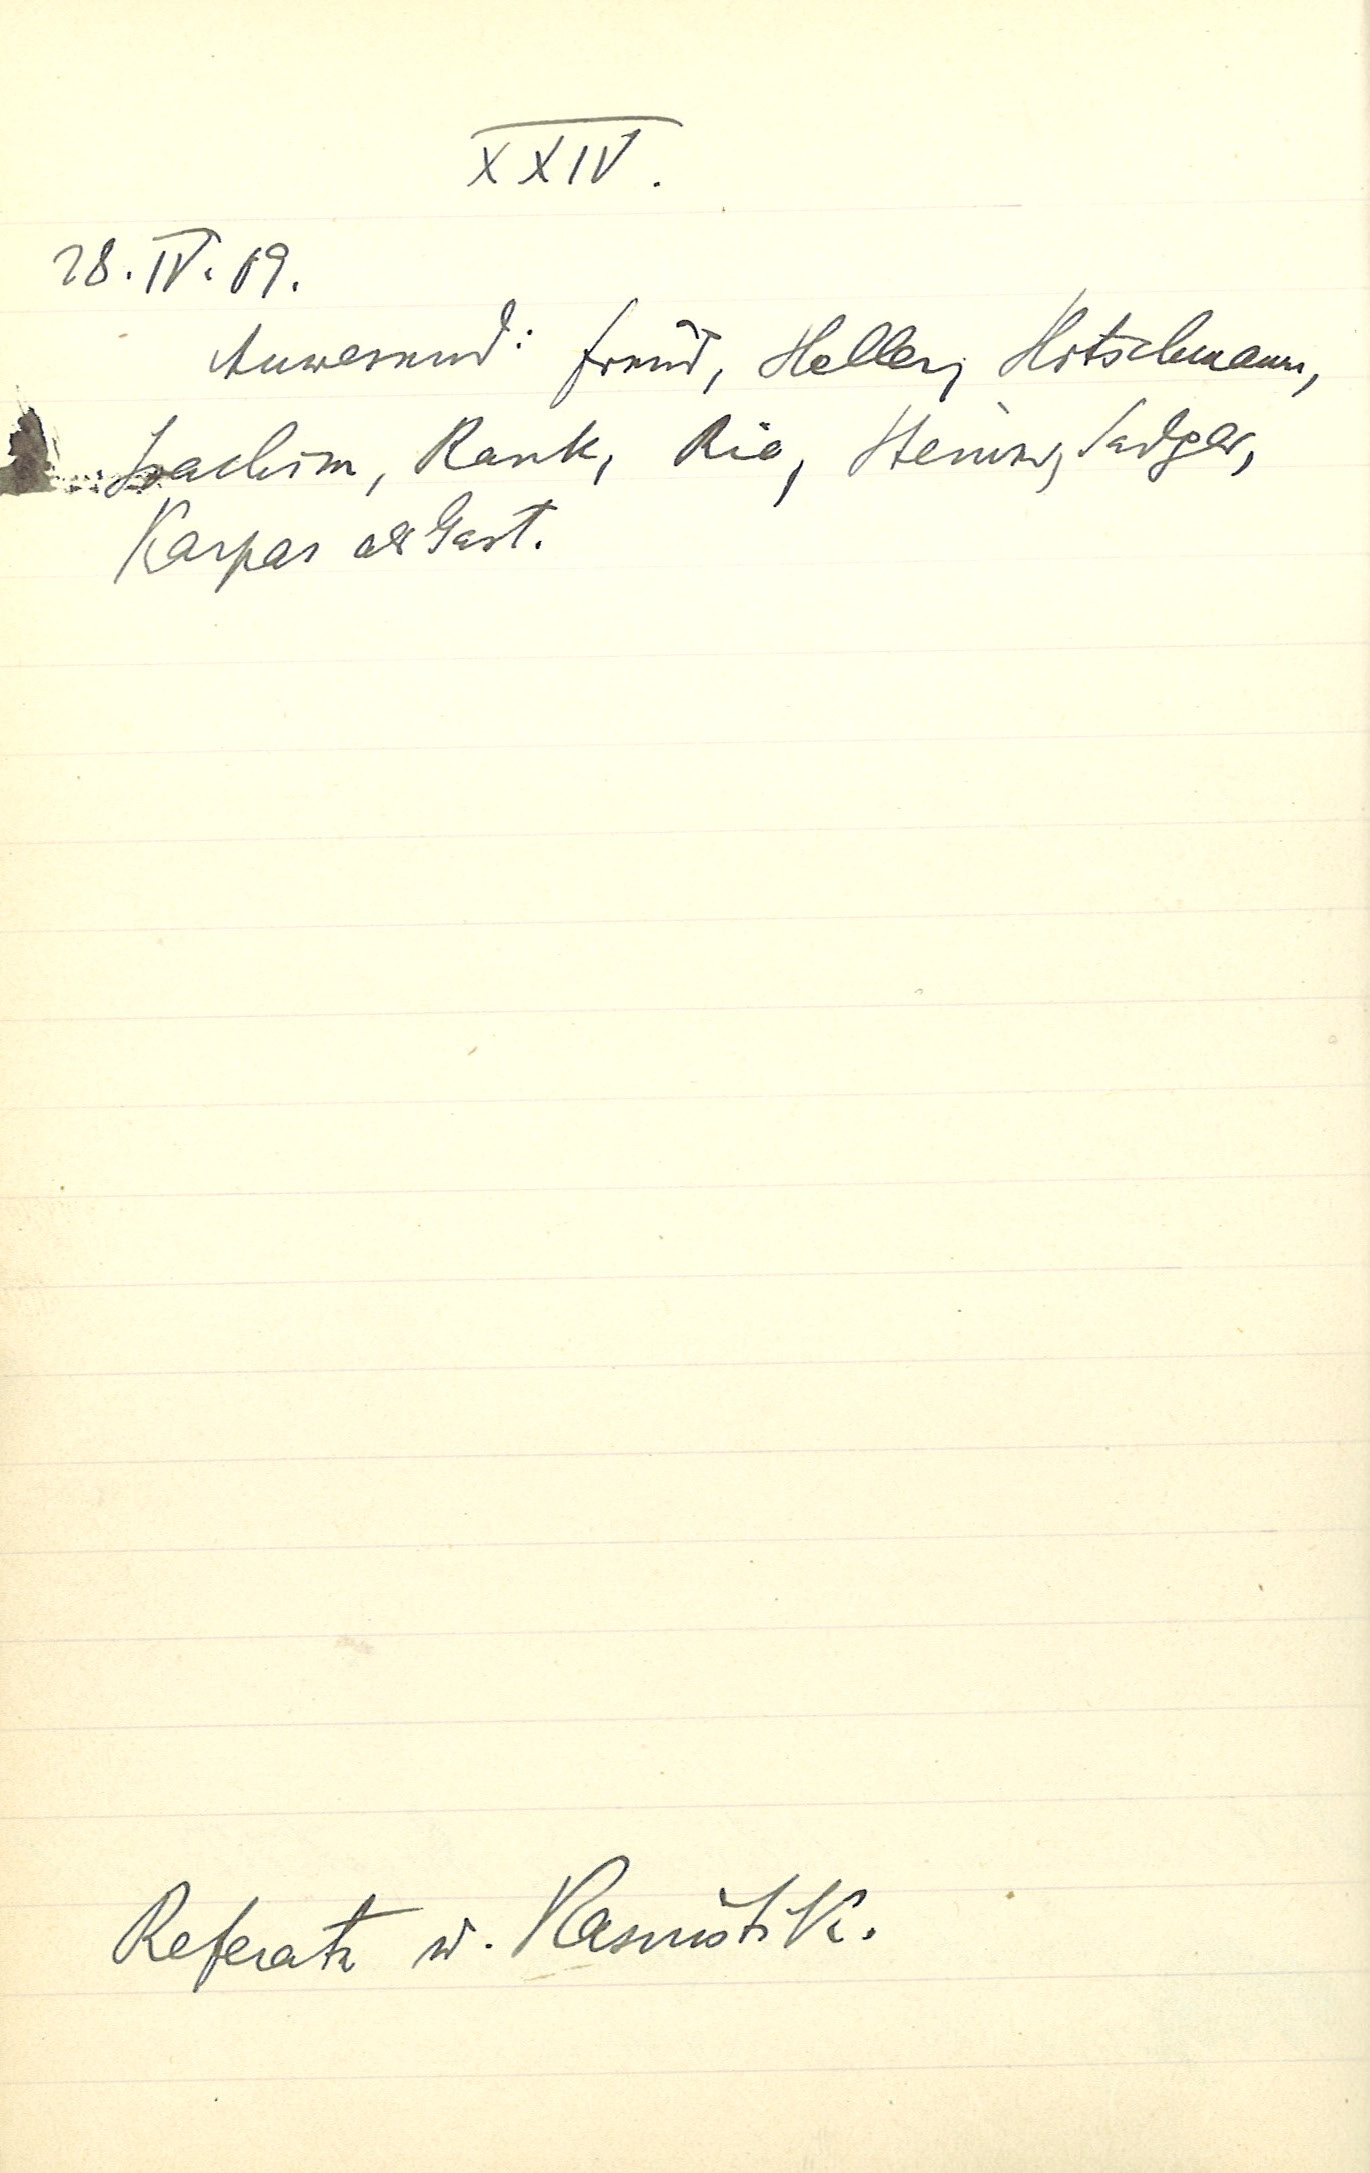 XXIV.
28. IV. 09.
Anwesend: Freud, Heller, Hitschmann,
Joachim, Rank, Rie, Steiner, Sadger,
Karpas als Gast.
Referate u. Kasuistik.